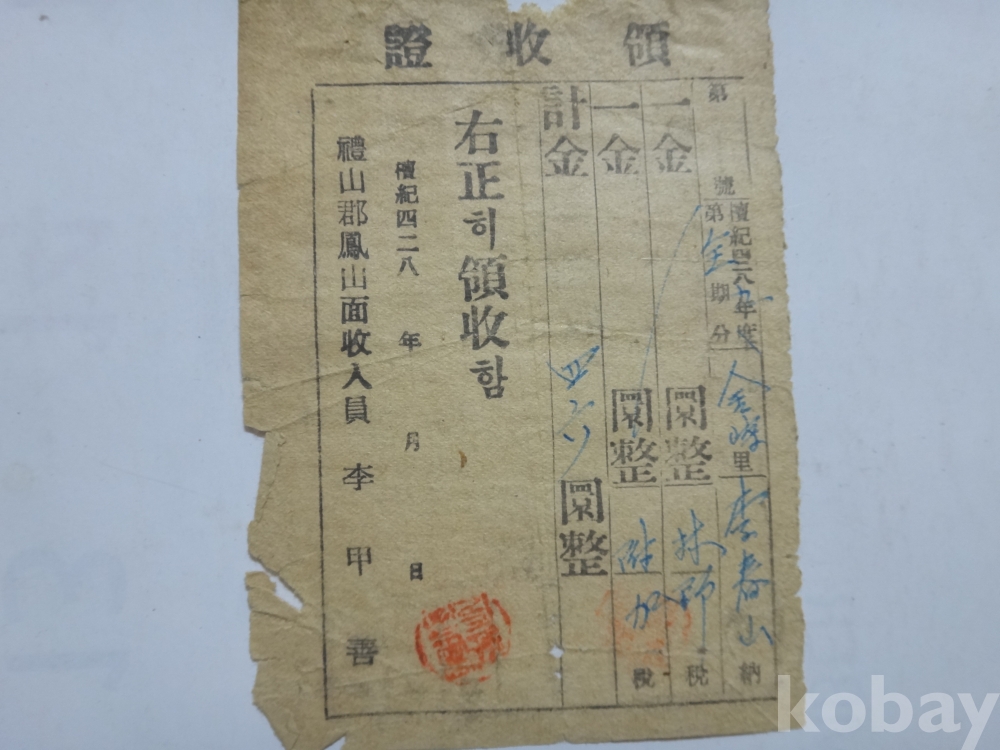 領收證
第 號
檀紀四二八九年度
第 全 期分
里 李春山 納
一金 圜整 林野 稅
一金 圜整 附加 稅
計金 圜整
右正히領收함
檀紀四二八 年 月 日
禮山郡鳳山面收入員 李甲善
kobay